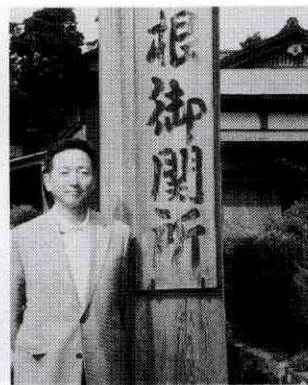 根御関所